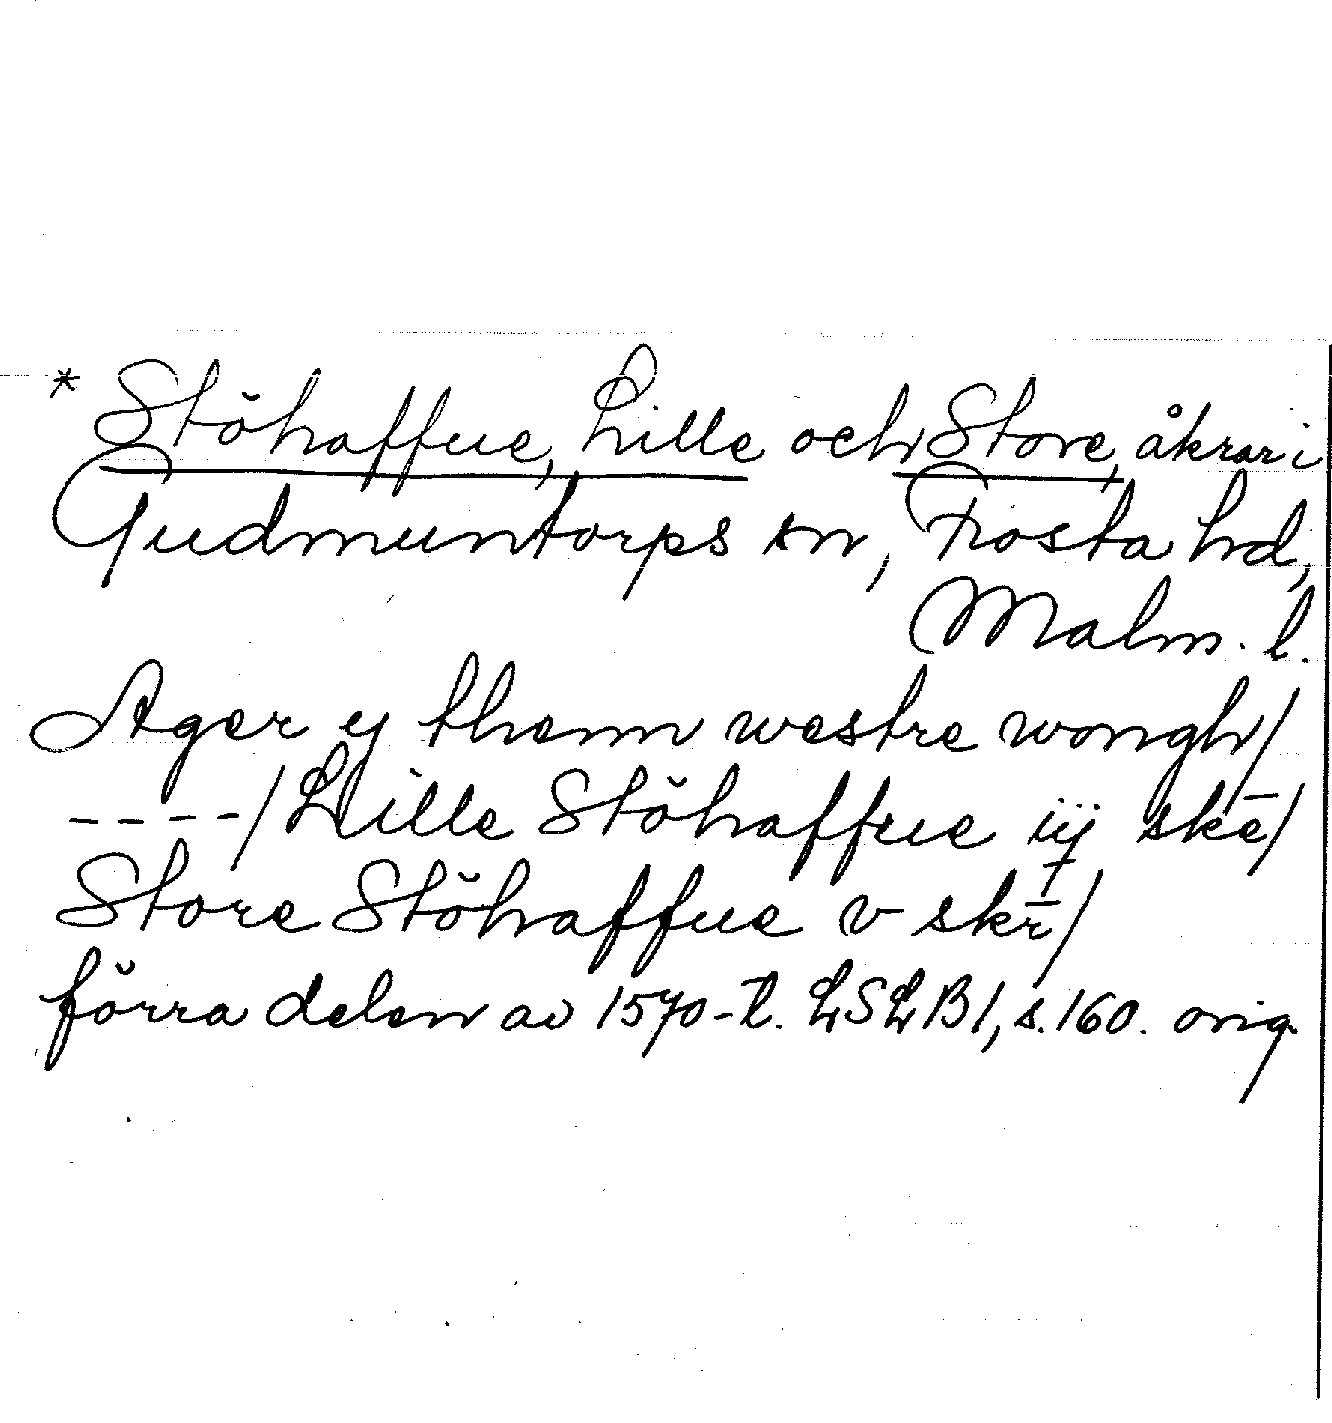 * Stöhaffue, Lille och Store, åkrar i
Gudmuntorps sn, Frosta hd,
Malm. l.
Ager ij thenn westre wongh/
----/ Lille Stöhaffue iij skē/
Store Stöhaffue v skr̄/
förra delen av 1570-t. LSLB1, s. 160. orig.